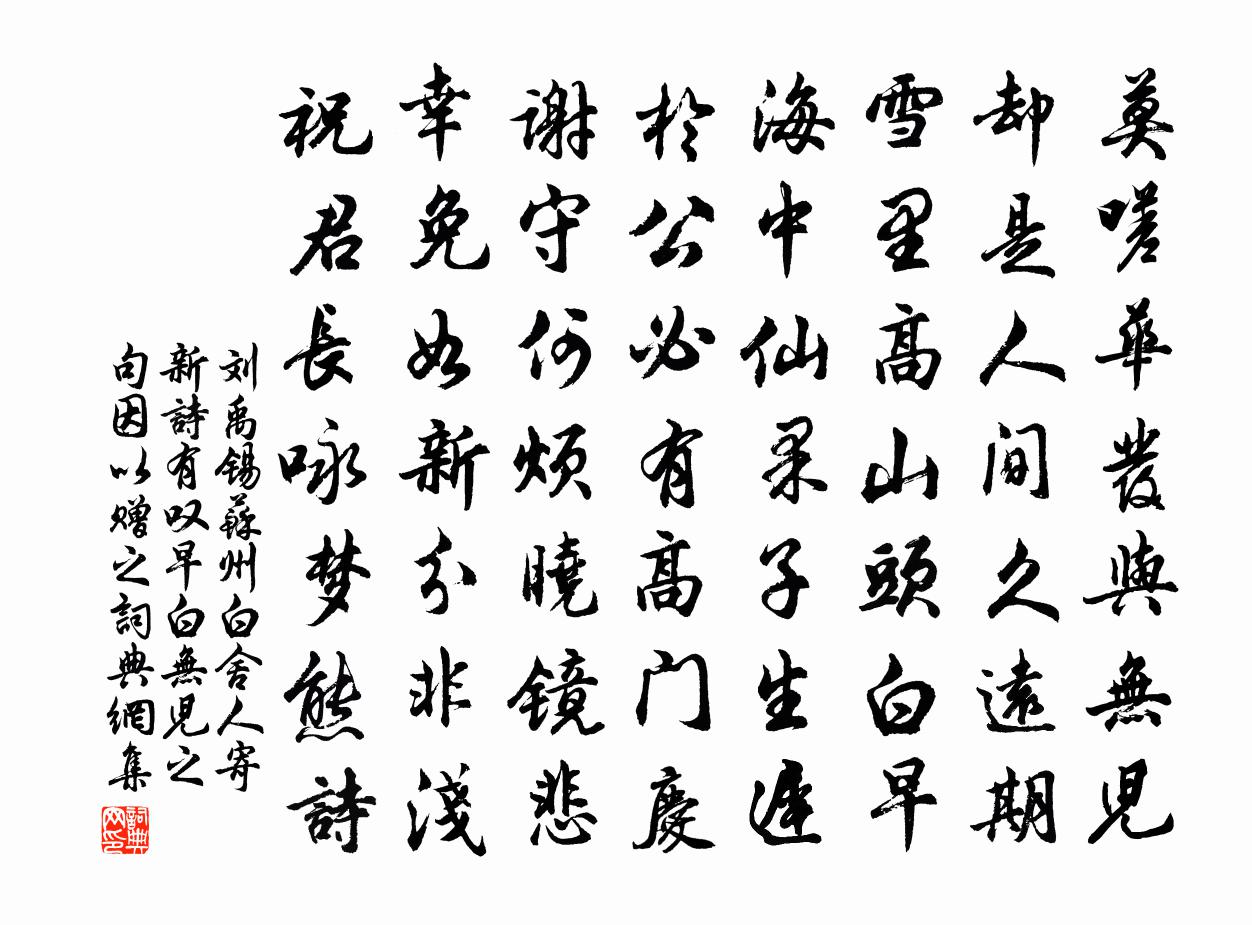 莫嗟華發與無児
却是人间久遠期
雪里高山頭白早
海中仙果子生遲
於公必有高门慶
謝守何煩曉镜悲
幸免如新分非淺
祝君長咏梦熊詩
刘禹锡蘇州白舍人寄
新詩有叹早白無児之
句因以赠之詞典網集
詞典网印